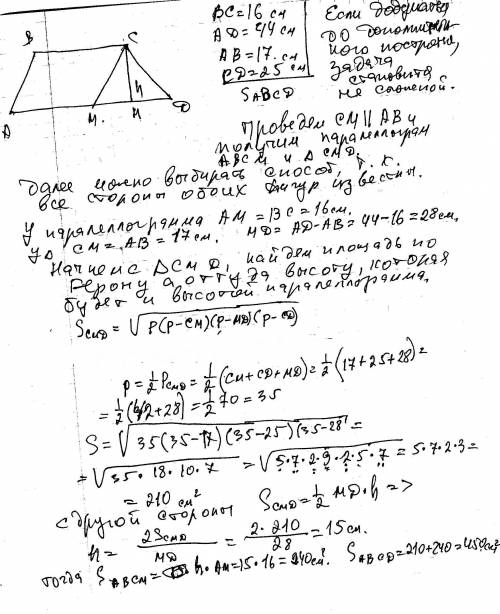 BC=16 см
AD=44 см
AB=17. см
CD=25 см
SABCD
Если додуматься
до дополнитель
ного построения,
задача
становится
не сложной.
B C
h
A M. H D
Проведем CM || AB и
получим параллелограм
ABCM и Δ CMD.
Далее можно выбирать способ, т. к.
все стороны обоих фигур известны.
У параллелограмма AM = BC = 16см.
CM = AB = 17 см. MD = AD-AB = 44-16 = 28см.
Начнем с Δ CMD, найдем площадь по
Герону а оттуда высоту, которая
будет и высотой параллелограмма.
SCMD = √P(P-CM)(P-MD)(P-CD)
p = 1/2 PCMD = 1/2 (CM+CD+MD) = 1/2 (17+25+28) =
= 1/2 (42+28) = 1/2 70 = 35
S = √35(35-17)(35-25)(35-28) =
= √35·18·10·7 = √5·7·2·9·2·5·7 = 5·7·2·3 =
= 210 см²
с другой стороны SCMD = 1/2 MD·h =>
h = 2SCMD/MD = 2·210/28 = 15см.
тогда SABCM = h·AM = 15·16 = 240см². SABCD = 210+240 = 450см²